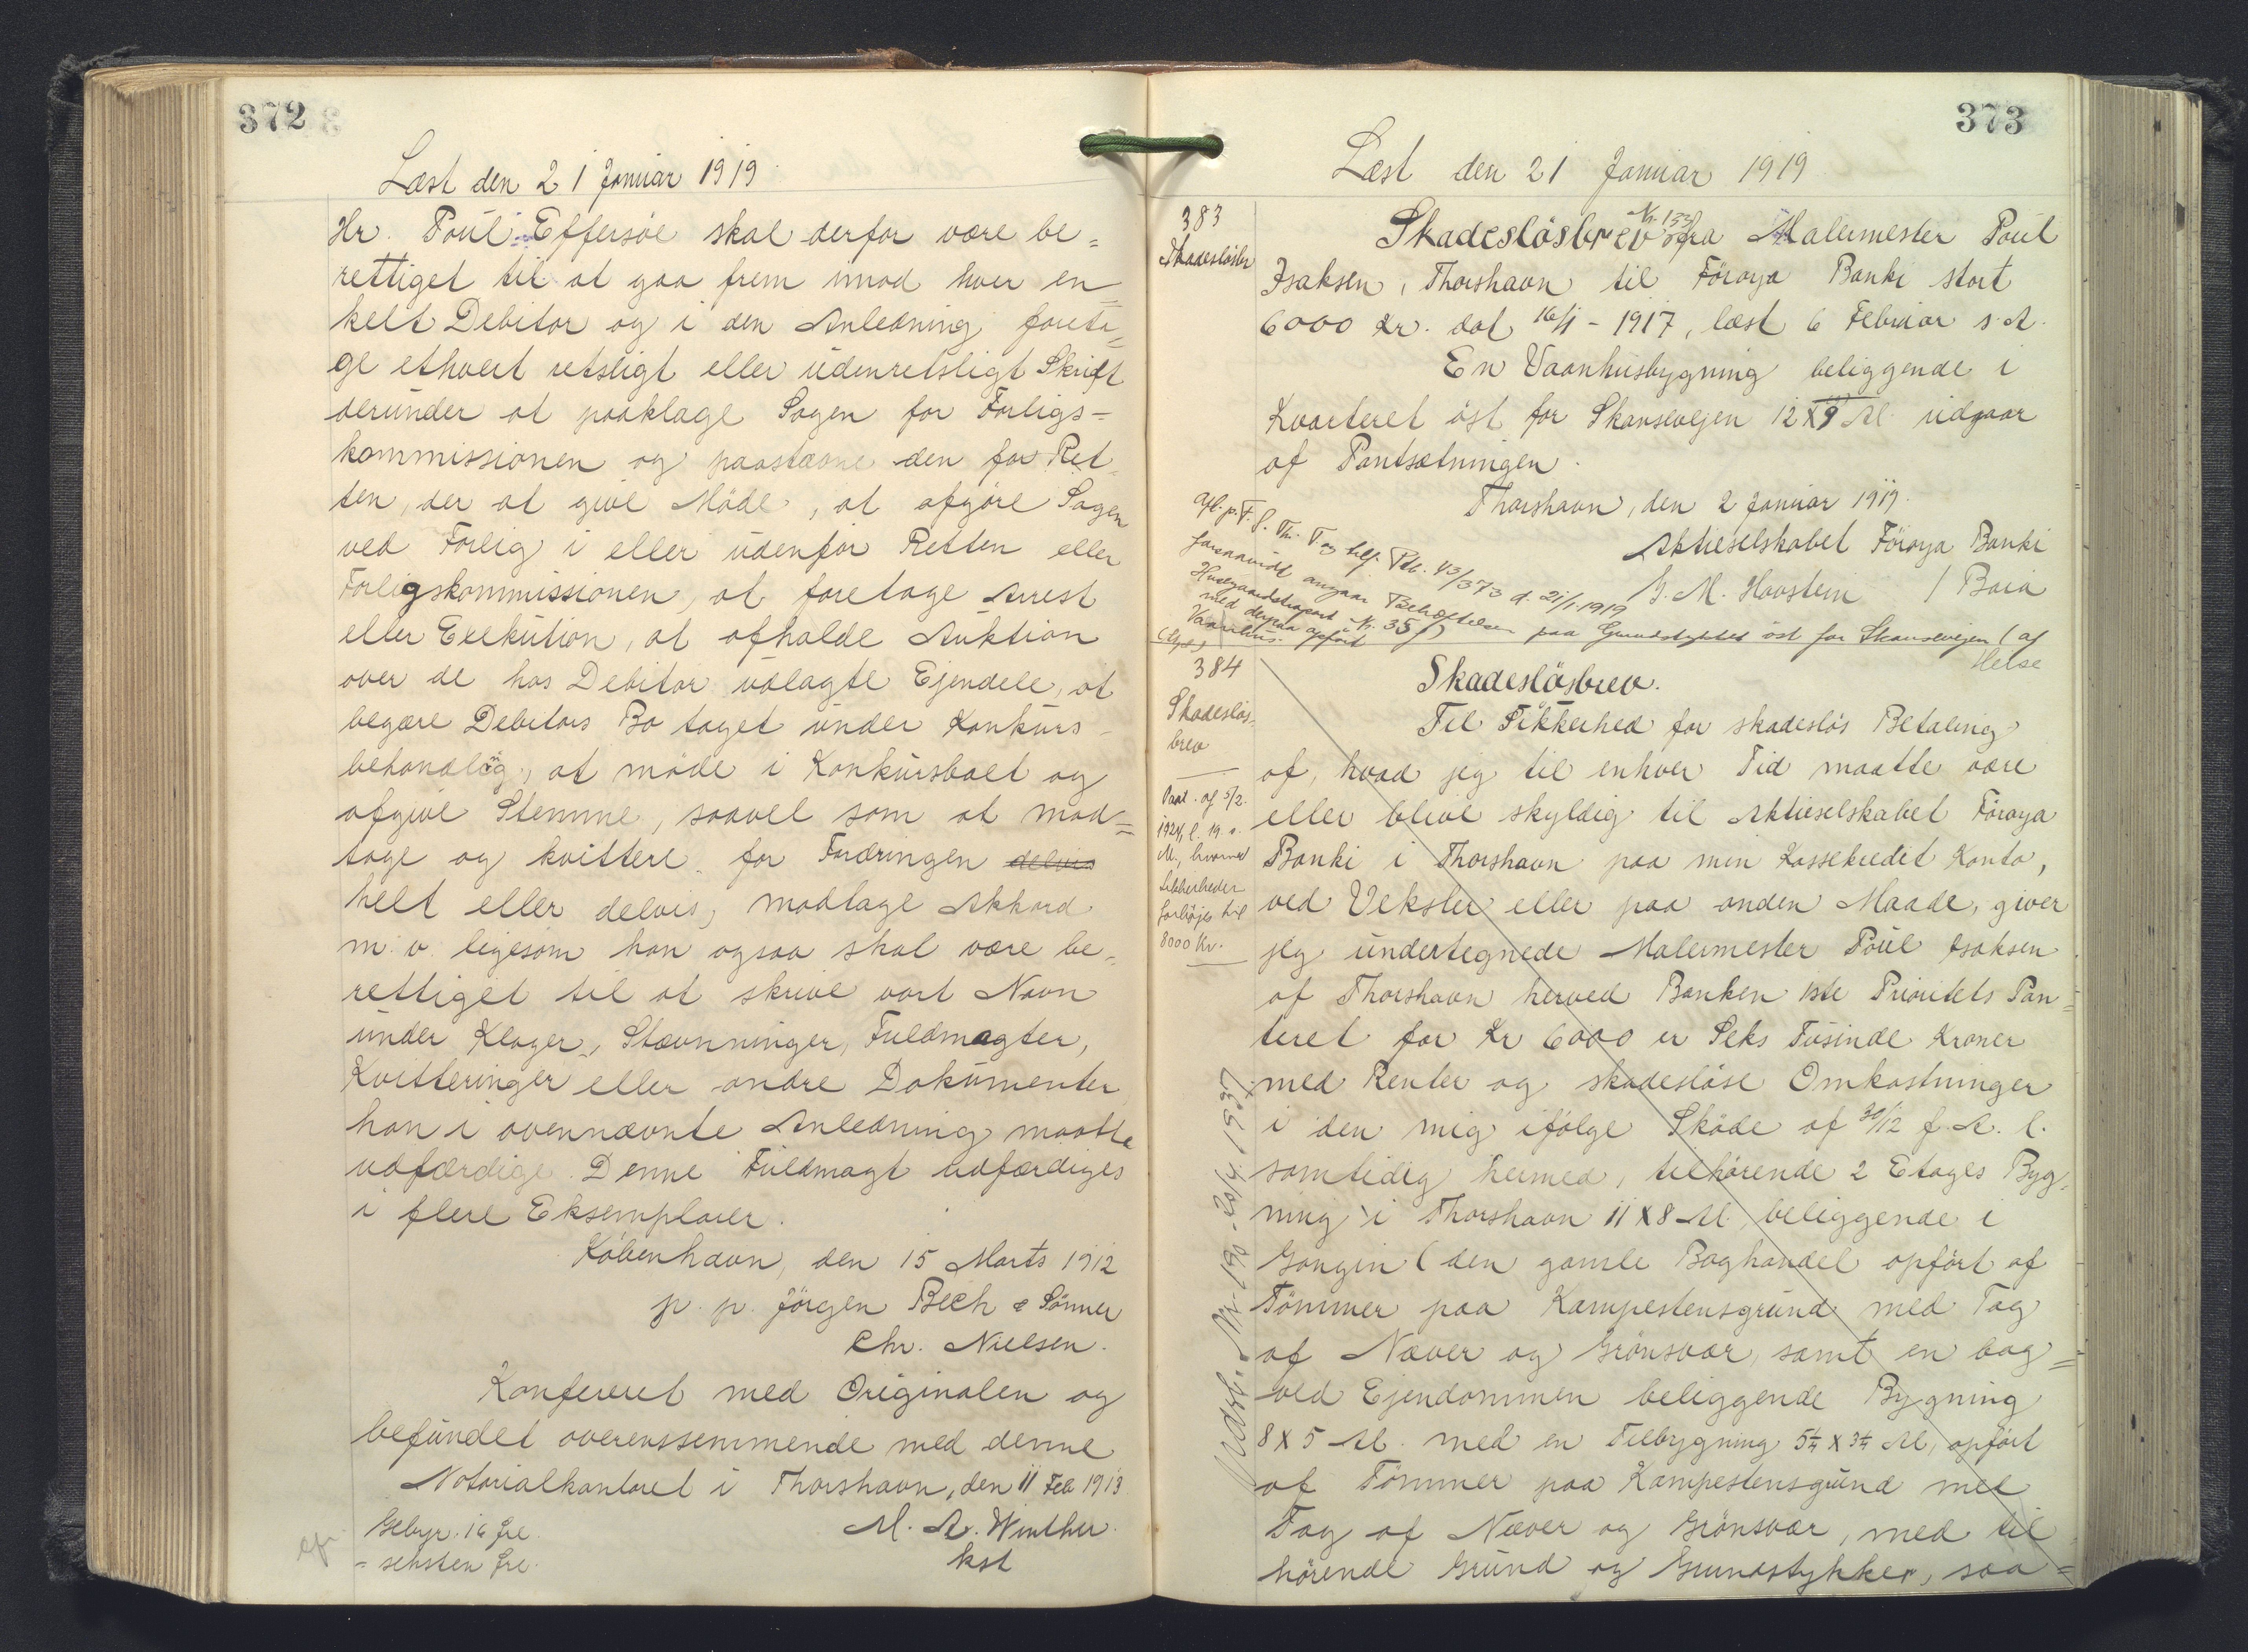 372
Læst den 21 Januar 1919.
Hr. Poul Effersøe skal derfor være be=
rettiget til at gaa frem imod hver en=
kelt Debitor og i den Anledning foreta=
ge ethvert retsligt eller udenretsligt Skridt
derunder at paaklage Sagen for Forligs=
kommissionen og paastævne den for Ret=
ten, der at give Møde, at afgöre Sagen
ved Forlig i eller udenfor Retten eller
Forligskommissionen, at foretage Arrest
eller Exekution, at afholde Auktion
over de hos Debitor udlagte Ejendele, at
begære Debitors Bo taget under Konkurs-
behandlög, at møde i Konkursboet og
afgive Stemme, saavel som at mod=
tage og kvittere for Fordringen delvis
helt eller delvis, modtage Akkord
m. v. ligesom han ogsaa skal være be=
rettiget til at skrive vort Navn
under Klager, Stævnninger, Fuldmagter,
Kvitteringer eller andre Dokumenter
han i ovennævnte Anledning maatte
udfærdige. Denne Fuldmagt udfærdiges
i flere Eksemplarer.
København, den 15 Marts 1912
p. p. Jörgen Bech & Sönner
Chr. Nielsen.
Konfereret med Originalen og
befundet overenssemmende med denne
Notarialkontoret i Thorshavn, den 11 Feb 1913
Gebyr. 16 Øre
= seksten Øre.
M. A. Winther.
kst
373
Læst den 21 Januar 1919
383
Skadesløsbr
Skadeslösbrev fra Malermester Poul
Isaksen, Thorshavn til Föroya Banki stort
6000 Kr. dat 16/1 - 1917, læst 6 Februar s. A.
En Vaanhusbygning beliggende i
Kvarteret öst for Skansevejen 12 X 9 Al. udgaar
af Pantsætningen.
Thorshavn, den 2 Januar 1919.
Aktieselskabet Föroya Banki
/ Baia
paa Grundstykket öst for Skansevejen (af
med derpaa opført
Vaanhus.
384
Skadeslös-
brev
Skadeslösbrev.
Til Sikkerhed for skadeslös Betaling
af, hvad jeg til enhver Tid maatte være
eller blive skyldig til Aktieselskabet Föroya
Banki i Thorshavn paa min Kassekredit Konto,
ved Veksler eller paa anden Maade, giver
jeg undertegnede Malermester Poul Isaksen
af Thorshavn herved Banken 1ste Prioritets Pan=
teret for Kr 6000 er Seks Tusinde Kroner
med Renter og skadeslöse Omkostninger
i den mig ifölge Sköde af 30/12 f. A. l.
samtidig hermed, tilhörende 2 Etages Byg=
ning i Thorshavn 11 X 8 Al. beliggende i
Gongin (den gamle Boghandel opfört af
Tömmer paa Kampestensgrund med Tag
af Næver og Grönsvær, samt en bag=
ved Ejendommen beliggende Bygning
8 X 5 Al. med en Tilbygning 5¼ X 3¼ Al, opfört
af Tömmer paa Kampestensgrund med
Tag af Næver og Grönsvær, med til
hörende Grund og Grundstykker, saa=
hvorved
Sikkerheden
forhöjes til
8000 Kr.